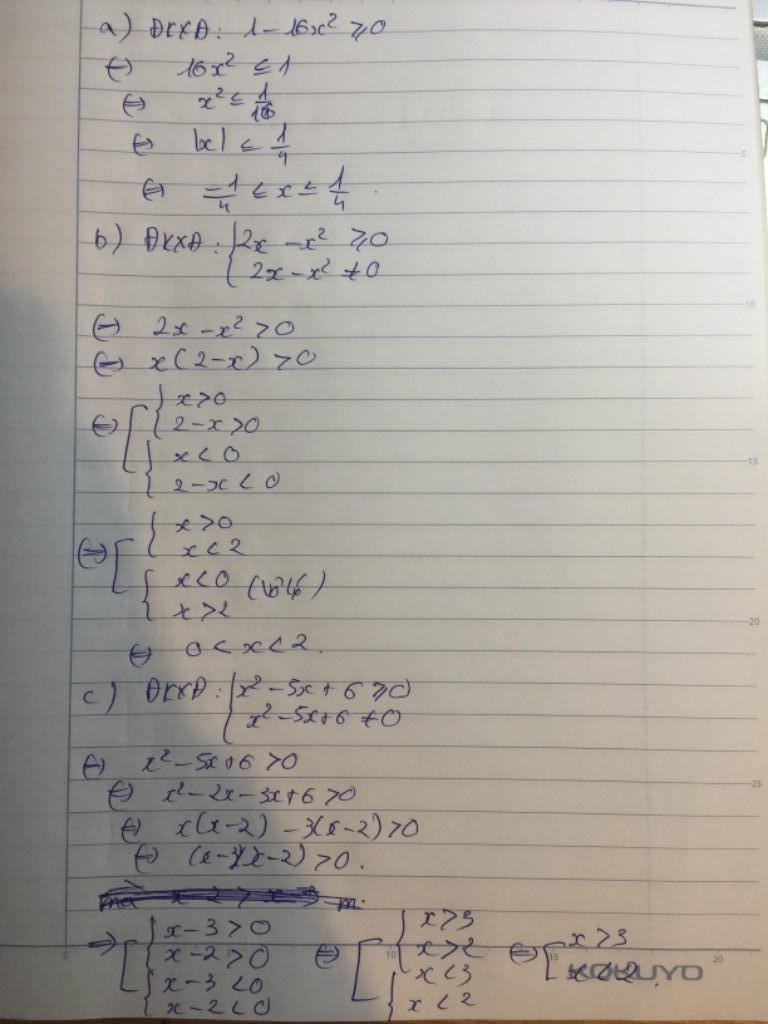 a) ĐKXĐ: 1 - 16x² ≥ 0
⇔ 16x² ≤ 1
⇔ x² ≤ 1/16
⇔ |x| ≤ 1/4
⇔ -1/4 ≤ x ≤ 1/4.
b) ĐKXĐ: { 2x - x² ≥ 0
2x - x² ≠ 0
⇔ 2x - x² > 0
⇔ x(2-x) > 0
⇔ [ { x > 0
2 - x > 0
{ x < 0
2 - x < 0
⇔ [ { x > 0
x < 2
{ x < 0 (vô lý)
x > 2
⇔ 0 < x < 2.
c) ĐKXĐ: { x² - 5x + 6 ≥ 0
x² - 5x + 6 ≠ 0
⇔ x² - 5x + 6 > 0
⇔ x² - 2x - 3x + 6 > 0
⇔ x(x-2) - 3(x-2) > 0
⇔ (x-3)(x-2) > 0.
⇒ [ { x - 3 > 0 ⇔ [ { x > 3 ⇔ [ x > 3
x - 2 > 0 x > 2 x < 2.
{ x - 3 < 0 { x < 3
x - 2 < 0 x < 2
KOKUYO
5
10
15
20
25
0
10
15
20